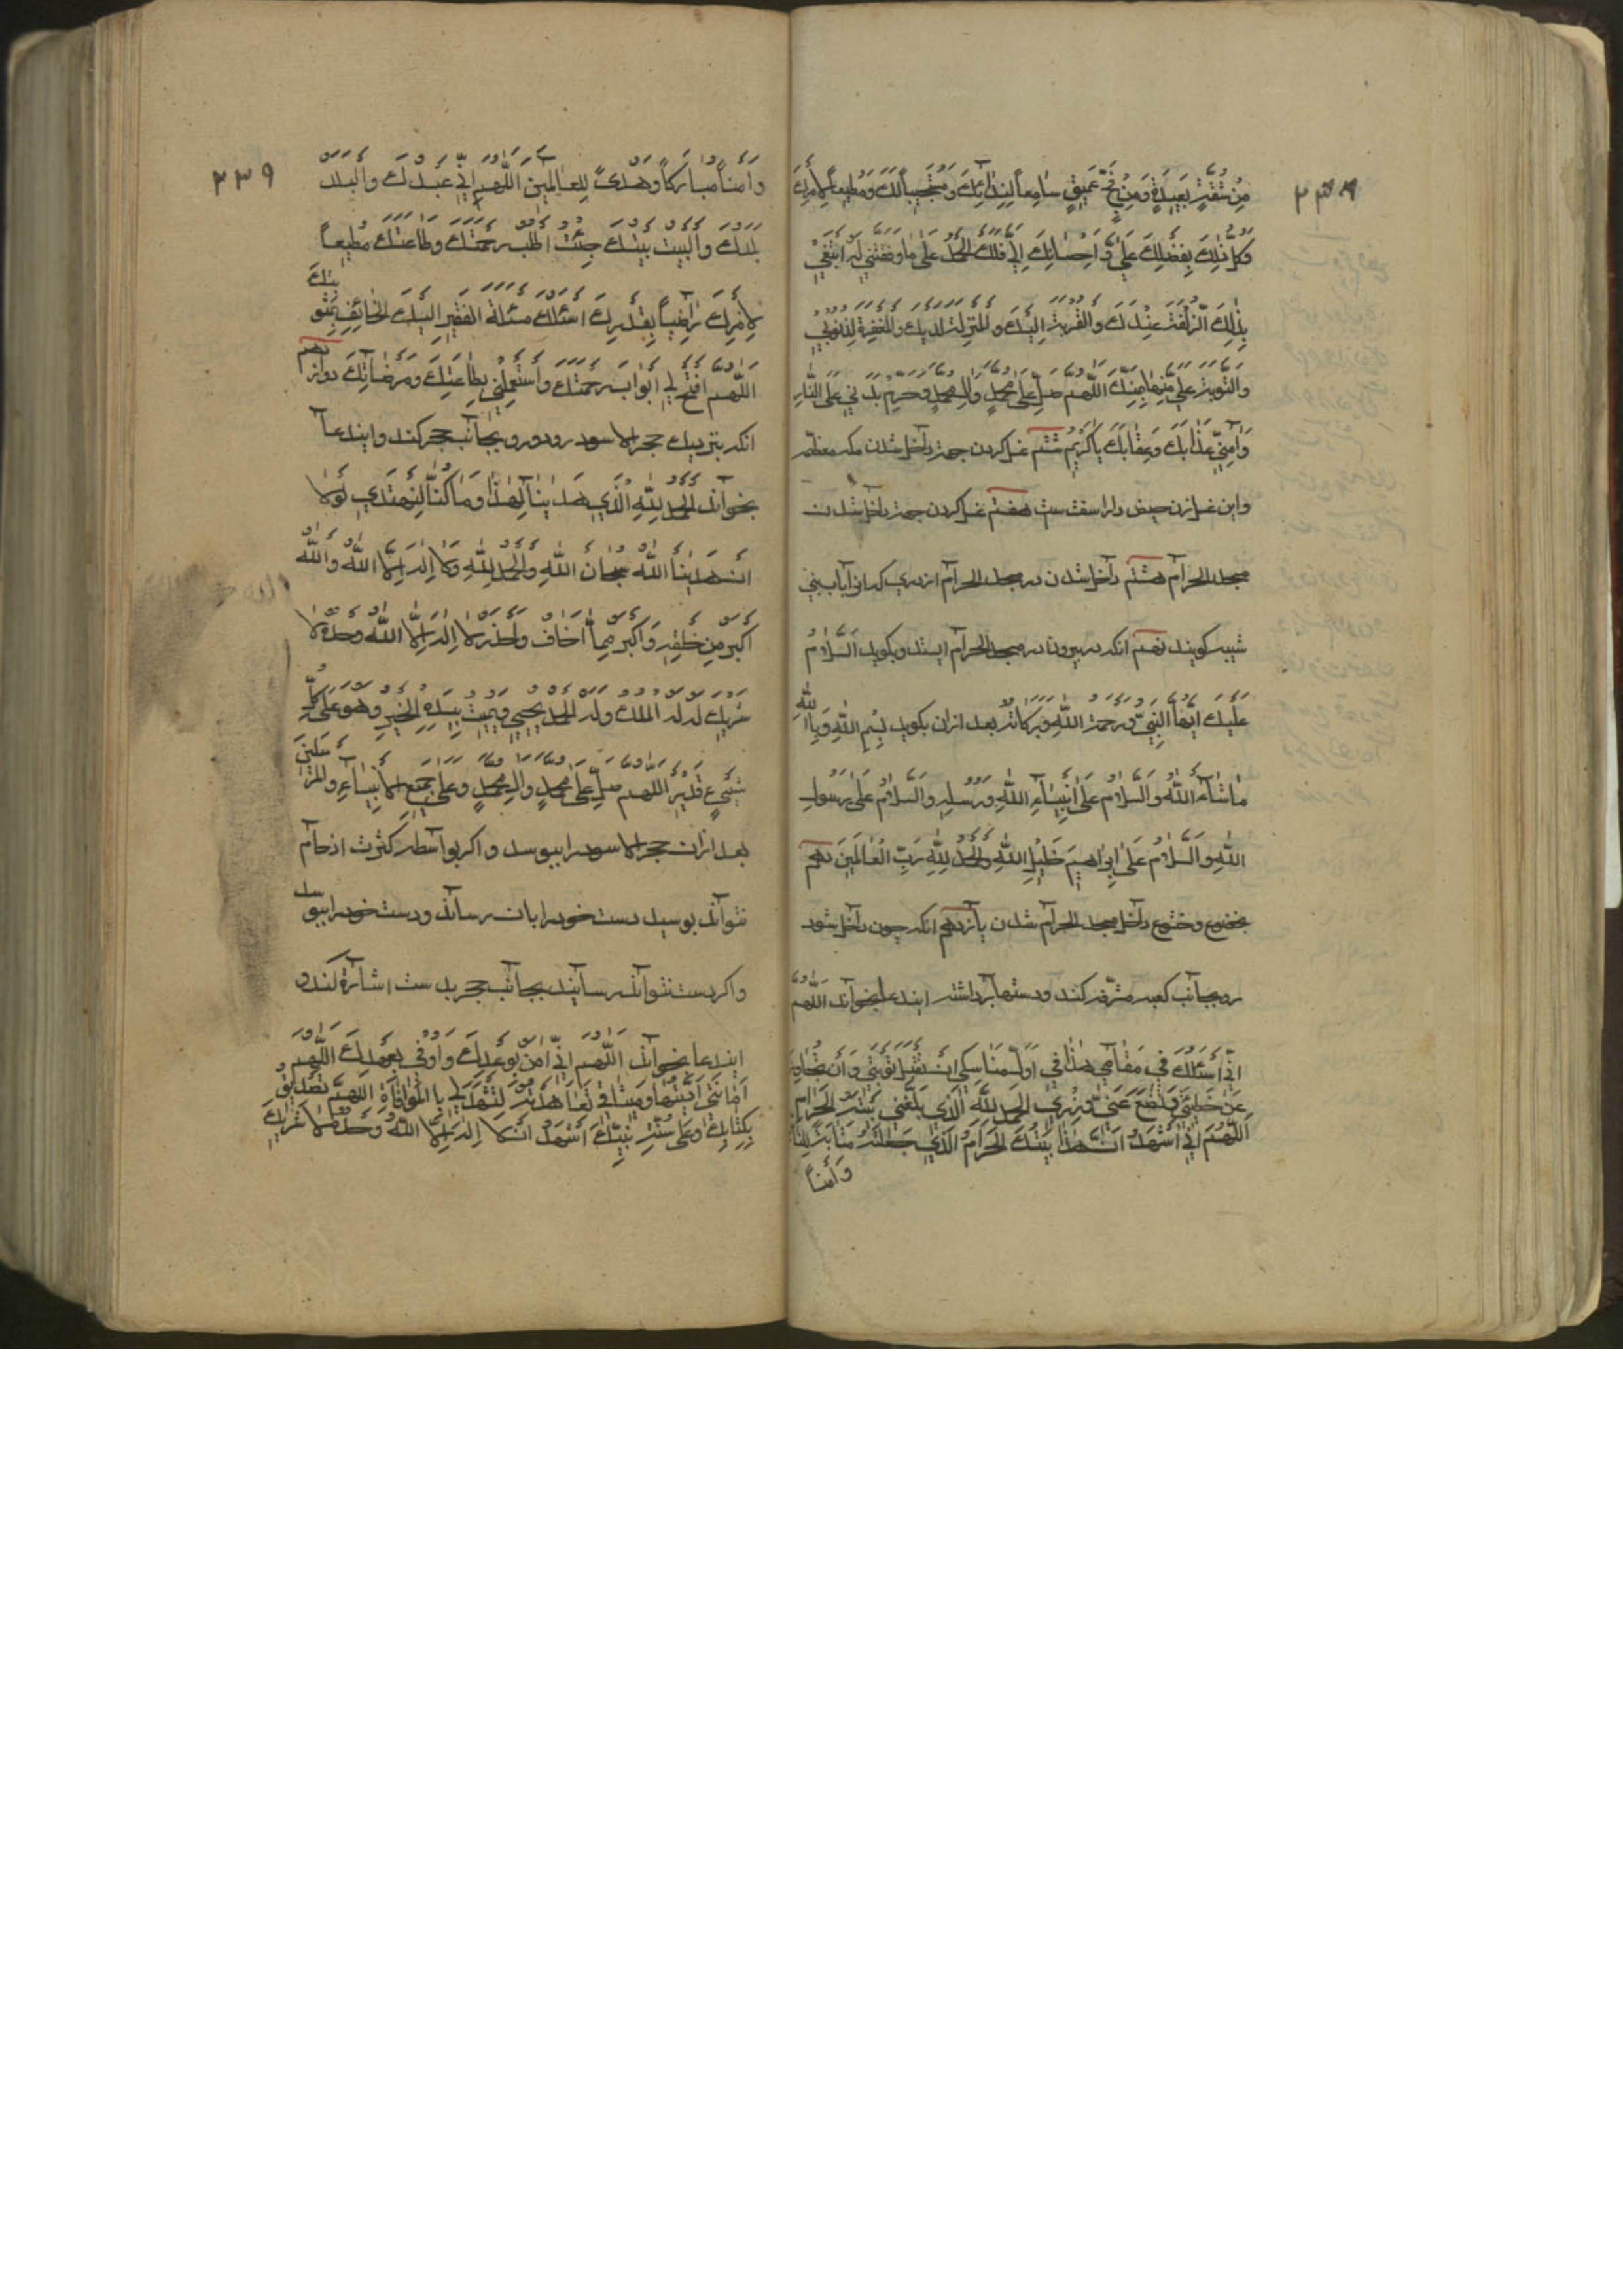 ٢٣٨
مِنْ شُقَّةٍ بَعِيدَةٍ وَمِنْ فَجٍّ عَمِيقٍ سَامِعاً لِنِدَائِكَ وَمُسْتَجِيباً لَكَ وَمُطِيعاً لِأَمْرِكَ
وَكُلُّ ذٰلِكَ بِفَضْلِكَ عَلَيَّ وَاِحْسَانِكَ اِلَيَّ فَلَكَ الْحَمْدُ عَلَىٰ مَا وَفَّقْتَنِي لَهُ اَبْتَغِي
بِذٰلِكَ الزُّلْفَةَ عِنْدَكَ وَالْقُرْبَةَ اِلَيْكَ وَالْمَنْزِلَةَ لَدَيْكَ وَالْمَغْفِرَةَ لِذُنُوبِي
وَالتَّوْبَةَ عَلَيَّ مِنْهَا بِمَنِّكَ اَللّٰهُمَّ صَلِّ عَلَىٰ مُحَمَّدٍ وَآلِ مُحَمَّدٍ وَحَرِّمْ بَدَنِي عَلَى النَّارِ
وَآمِنِّي عَذَابَكَ وَعِقَابَكَ يَا كَرِيمُ ششم غسل کردن جهة داخل شدن مکه معظمه
واین غسل ازن حیض دار اسقت سث هفتم غسل کردن جهة داخل شدن
مسجد الحرام هشتم داخل شدن در مسجد الحرام از دری که انرا باب بنی
شیبه کویند نهم انکه در بیرون در مسجد الحرام ایستد وبکوید اَلسَّلَامُ
عَلَيْكَ اَيُّهَا النَّبِيُّ وَرَحْمَةُ اللّٰهِ وَبَرَكَاتُهُ بعد ازان بکوید بِسْمِ اللّٰهِ وَبِاللّٰهِ
مَا شَاءَ اللّٰهُ وَالسَّلَامُ عَلَىٰ اَنْبِيَاءِ اللّٰهِ وَرُسُلِهِ وَالسَّلَامُ عَلَىٰ رَسُولِ
اللّٰهِ وَالسَّلَامُ عَلَىٰ اِبْرَاهِيمَ خَلِيلِ اللّٰهِ وَالْحَمْدُ لِلّٰهِ رَبِّ الْعَالَمِينَ دهم
بخضوع وخشوع داخل مسجد الحرام شدن یازدهم انکه چون داخل شود
رو بجانب کعبه مشرفه کند ودستها برداشته ایندعا بخواند اَللّٰهُمَّ
اِنِّي اَسْئَلُكَ فِي مَقَامِي هٰذَا فِي اَوَّلِ مَنَاسِكِي اَنْ تَقْبَلَ تَوْبَتِي وَاَنْ تَجَاوَزَ
عَنْ خَطِيئَتِي وَتَضَعَ عَنِّي وِزْرِي اَلْحَمْدُ لِلّٰهِ الَّذِي بَلَّغَنِي بَيْتَهُ الْحَرَامَ
اَللّٰهُمَّ اِنِّي اَشْهَدُ اَنَّ هٰذَا بَيْتُكَ الْحَرَامُ الَّذِي جَعَلْتَهُ مَثَابَةً لِلنَّاسِ
وَاَمْناً
٢٣٩
وَاَمْناً مُبَارَكاً وَهُدًى لِلْعَالَمِينَ اَللّٰهُمَّ اِنِّي عَبْدُكَ وَالْبَلَدُ
بَلَدُكَ وَالْبَيْتُ بَيْتُكَ جِئْتُ اَطْلُبُ رَحْمَتَكَ وَطَاعَتَكَ مُطِيعاً
لِاَمْرِكَ رَاضِياً بِقَدَرِكَ اَسْئَلُكَ مَسْئَلَةَ الْفَقِيرِ اِلَيْكَ الْخَائِفِ بِعُقُوبَتِكَ
اَللّٰهُمَّ افْتَحْ لِي اَبْوَابَ رَحْمَتِكَ وَاسْتَعْمِلْنِي بِطَاعَتِكَ وَمَرْضَاتِكَ دوازدهم
انکه بنزدیك حجر الاسود رود ورو بجانب حجر کند وایندعا
بخواند اَلْحَمْدُ لِلّٰهِ الَّذِي هَدَانَا لِهٰذَا وَمَا كُنَّا لِنَهْتَدِيَ لَوْلَا
اَنْ هَدَانَا اللّٰهُ سُبْحَانَ اللّٰهِ وَالْحَمْدُ لِلّٰهِ وَلَا اِلٰهَ اِلَّا اللّٰهُ وَاللّٰهُ
اَكْبَرُ مِنْ خَلْقِهِ وَاَكْبَرُ مِمَّا اَخَافُ وَاَحْذَرُ لَا اِلٰهَ اِلَّا اللّٰهُ وَحْدَهُ لَا
شَرِيكَ لَهُ لَهُ الْمُلْكُ وَلَهُ الْحَمْدُ يُحْيِي وَيُمِيتُ بِيَدِهِ الْخَيْرُ وَهُوَ عَلَىٰ كُلِّ
شَيْءٍ قَدِيرٌ اَللّٰهُمَّ صَلِّ عَلَىٰ مُحَمَّدٍ وَآلِ مُحَمَّدٍ وَعَلَىٰ جَمِيعِ الْاَنْبِيَاءِ وَالْمُرْسَلِينَ
بعد ازان حجر الاسود را ببوسد واکر بواسطه کثرت ازدحام
نتواند بوسید دست خود را بان رساند ودست خود را ببوسد
واکر دست نتواند رسانید بجانب حجر بدست اشاره کند و
ایندعا بخواند اَللّٰهُمَّ اِنِّي اُومِنُ بِوَعْدِكَ وَاُوفِي بِعَهْدِكَ اَللّٰهُمَّ
اَمَانَتِي اَدَّيْتُهَا وَمِيثَاقِي تَعَاهَدْتُهُ لِتَشْهَدَ لِي بِالْمُوَافَاةِ اَللّٰهُمَّ تَصْدِيقاً
بِكِتَابِكَ وَعَلَىٰ سُنَّةِ نَبِيِّكَ اَشْهَدُ اَنْ لَا اِلٰهَ اِلَّا اللّٰهُ وَحْدَهُ لَا شَرِيكَ